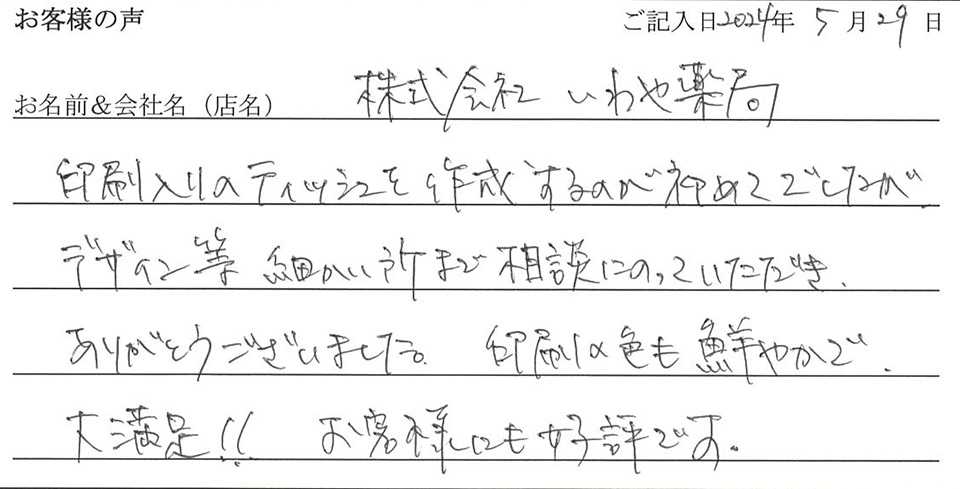 お客様の声 ご記入日2024年 5月29日
お名前&会社名（店名） 株式会社 いわや薬局
印刷入りのティッシュを作成するのが初めてでしたが、
デザイン等 細かい所まで相談にのっていただき、
ありがとうございました。 印刷の色も鮮やかで、
大満足!! お客様にも好評です。